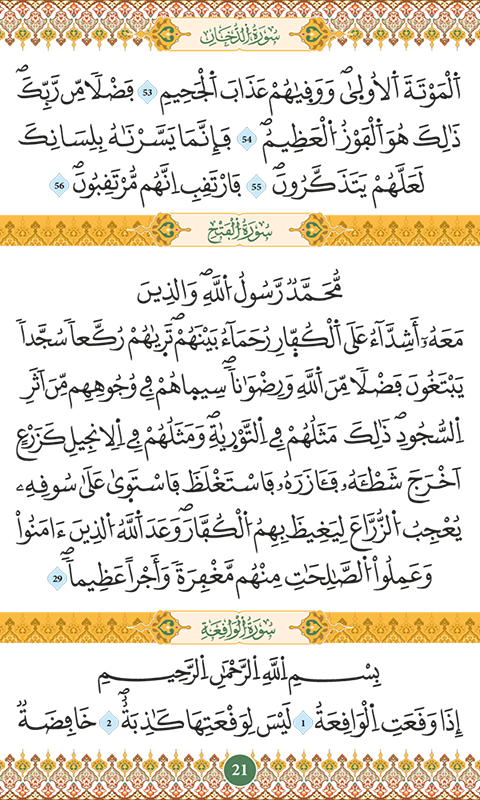 سُورَةُ الدُّخَانِ
اَ۬لْمَوْتَةَ اَ۬لُاول۪ىٰۖ وَوَق۪يٰهُمْ عَذَابَ اَ۬لْجَحِيمِ 53 فَضْلاٗ مِّن رَّبِّكَۖ
ذَٰلِكَ هُوَ اَ۬لْفَوْزُ اُ۬لْعَظِيمُۖ 54 فَإِنَّمَا يَسَّرْنَٰهُ بِلِسَانِكَ
لَعَلَّهُمْ يَتَذَكَّرُونَۖ 55 فَارْتَقِبِ اِنَّهُم مُّرْتَقِبُونَۖ 56
سُورَةُ الْفَتْحِ
مُّحَمَّدٞ رَّسُولُ اُ۬للَّهِۖ وَالذِينَ
مَعَهُۥٓ أَشِدَّآءُ عَلَى اَ۬لْكُفّ۪ارِ رُحَمَآءُ بَيْنَهُمْۖ تَر۪يٰهُمْ رُكَّعاٗ سُجَّداٗ
يَبْتَغُونَ فَضْلاٗ مِّنَ اَ۬للَّهِ وَرِضْوَٰناٗۖ سِيم۪اهُمْ فِي وُجُوهِهِم مِّنَ اَثَرِ
اِ۬لسُّجُودِۖ ذَٰلِكَ مَثَلُهُمْ فِي اِ۬لتَّوْر۪يٰةِۖ وَمَثَلُهُمْ فِي اِ۬لِانجِيلِ كَزَرْعٍ
اَخْرَجَ شَطْـَٔهُۥ فَـَٔازَرَهُۥ فَاسْتَغْلَظَ فَاسْتَو۪ىٰ عَلَىٰ سُوقِهِۦ
يُعْجِبُ اُ۬لزُّرَّاعَ لِيَغِيظَ بِهِمُ اُ۬لْكُفَّارَۖ وَعَدَ اَ۬للَّهُ اُ۬لذِينَ ءَامَنُواْ
وَعَمِلُواْ اُ۬لصَّٰلِحَٰتِ مِنْهُم مَّغْفِرَةٗ وَأَجْراً عَظِيماٗۖ 29
سُورَةُ الْوَاقِعَةِ
بِسْمِ اِ۬للَّهِ اِ۬لرَّحْمَٰنِ اِ۬لرَّحِيمِ
إِذَا وَقَعَتِ اِ۬لْوَاقِعَةُ 1 لَيْسَ لِوَقْعَتِهَا كَاذِبَةٌۖ 2 خَافِضَةٞ
21